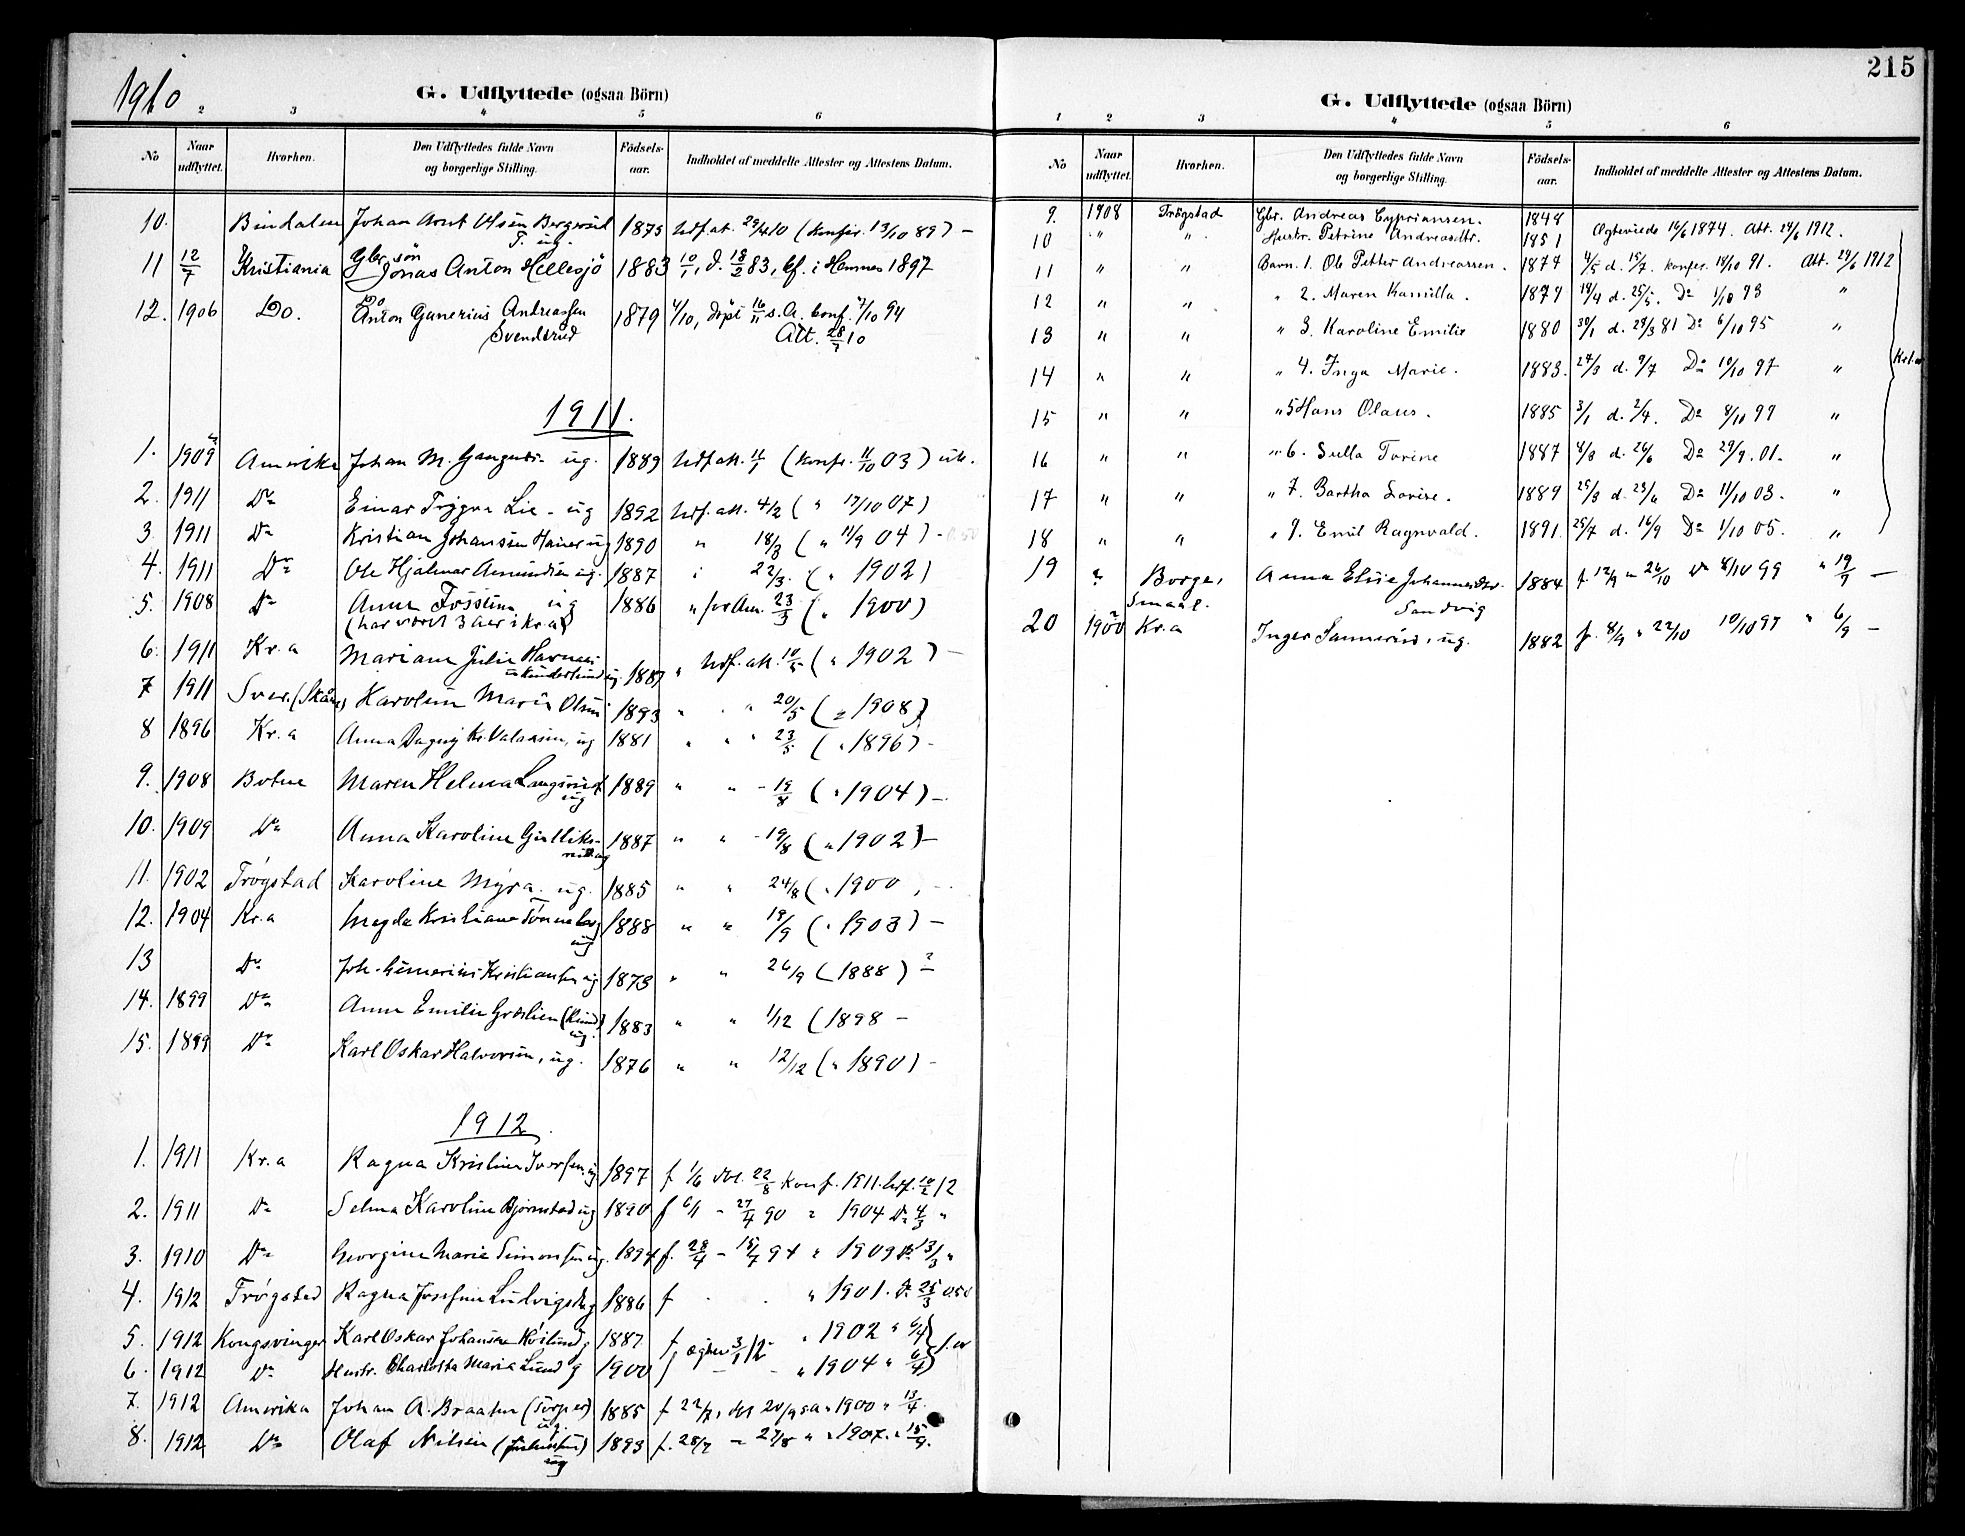 1910
G. Udflyttede (ogsaa Börn)
2 3 4 5 6
No Naar udflyttet. Hvorhen. Den Udflyttedes fulde Navn og borgerlige Stilling. Födsels-aar. Indholdet af meddelte Attester og Attestens Datum.
10. Bindalen Johan Arnt Olsen 1875 Udf.at. 29/4 10 (konfir. 13/10 89) –
ug.
11 12/7 Kristiania Gbr. sön Jonas Anton Hellesjö 1883 10/1, d. 18/2 83, kf. i Hemnes 1897
12. 1906 Do. Anton Gunerius Andreassen 1879 4/10, döpt 16/11 s.A. conf. 7/10 94
Svendsrud Att. 28/7 10
1911.
1. 1909 Amerika Johan M. ug. 1889 Udf.att. 11/1 (konfr. 11/10 03) ub.
2. 1911 Do Einar Trygva Lie - ug 1892 Udf.att. 4/2 ( " 17/10 07)
3. 1911 Do Kristian Johansen ug 1890 " 18/3 ( " 11/9 04) - 0.50
4. 1911 Do Ole Hjalmar Amundsen ug. 1887 " 22/3. ( " 1902)
5. 1908 Do Anna Fossum ug 1886 " for Am. 23/3 ( " 1900)
(har været 3 aar i Kr.a)
6. 1911 Kr.a Mariane Julie 1887 " Udf.att. 10/5 ( " 1902) –
7 1911 Sver. (Skåne) Karoline Marie Olsen 1893 " " " 20/5 ( " 1908)
8 1896 Kr.a Anna Dagny Kr. ug 1881 " " " 23/5 ( " 1896) -
9. 1908 Botne Maren Helena Langsrud 1889 " " - 19/8 ( " 1904) –
ug
10. 1909 Do Anna Karoline 1887 " " - 19/8 ( " 1902) –
11. 1902 Trögstad Karoline Myra - ug. 1885 " " 24/8 ( " 1900 , -
12. 1904 Kr.a Magda Kristiane 1888 " " 19/9 ( " 1903) –
ug
13 Do Joh. Gunerius Kristiansen ug 1873 " " 26/9 ( 1888) ? –
14. 1899 Do Anna Emilie 1883 " " 1/12 ( 1898 –
ug.
15. 1899 Do Karl Oskar Halvorsen, ug. 1876 " " 12/12 ( " 1890) –
1912.
1. 1911 Kr.a Ragna Kristine Iversen ug 1897 f 1/6 död. 22/8 konf. 1911. Udf. 10/2 12
2. 1911 Do Selma Karoline Bjørnstad ug 1890 f 6/1 – 27/4 90 " 1904 Do 4/3 "
3. 1910 Do Georgine Marie Simonsen ug. 1894 f. 28/4 – 15/7 94 " 1909 Do 13/3 "
4. 1912 Trögstad Ragna Josefine Ludvigsd. g 1886 f " 1901. Do 25/3 0.50
5. 1912 Kongsvinger Karl Oskar Johansen g 1887 f, 3/1 12 " 1902 " 6/4
6. 1912 Do Hustr. Charlotta Maria Lund g 1900 f – – " 1904 " 6/4 1.00
7. 1912 Amerika Johan A. Braaten (Torper) 1885 f 22/7, död 20/9 s.a. " 1900 " 13/4.
ug.
8. 1912 Do Olaf Nilsen 1893 f. 28/7 – 27/8 " " 1907. " 15/9.
ug
215
G. Udflyttede (ogsaa Börn)
1 2 3 4 5 6
No Naar udflyttet. Hvorhen. Den Udflyttedes fulde Navn og borgerlige Stilling. Födsels-aar. Indholdet af meddelte Attester og Attestens Datum.
9. 1908 Trögstad Gbr. Andreas Cypriansen. 1848 Ægteviede 16/6 1874. Att. 24/6 1912.
10 " " Hustr. Petrine Andreasdtr. 1851
11 " " Barn. 1. Ole Petter Andreassen. 1874 4/5 d. 15/7. konfes. 18/10 91. Att. 24/6 1912
12 " " " 2. Maren Kamilla. 1877 19/4 d. 25/5. Do 1/10 93 "
13 " " " 3. Karoline Emilie 1880 30/1 d. 28/3 81 Do 6/10 95 "
14 " " " 4. Inga Marie. 1883. 24/3 d. 9/7 Do 10/10 97 "
15 " " " 5 Hans Olaus. 1885 3/1 d. 2/4. Do 8/10 99 "
16 " " " 6. Sulla Torine 1887 4/3 d. 26/6 Do 29/9. 01. "
17 " " " 7. Bartha Lovise. 1889 25/3 d. 23/6 Do 11/10 03. "
18 " " " 9. Emil Ragnvald. 1891. 25/7 d. 16/9 Do 1/10 05. "
19 ? Borge, Anna Elise Johannesdtr. 1884 f. 12/9 " 26/10 Do 8/10 99 " 19/9 –
Smaal. Sandvig
20 1900 ? Kr.a Inger ug. 1882 f. 8/9 " 22/10 10/10 97 " 6/9 –